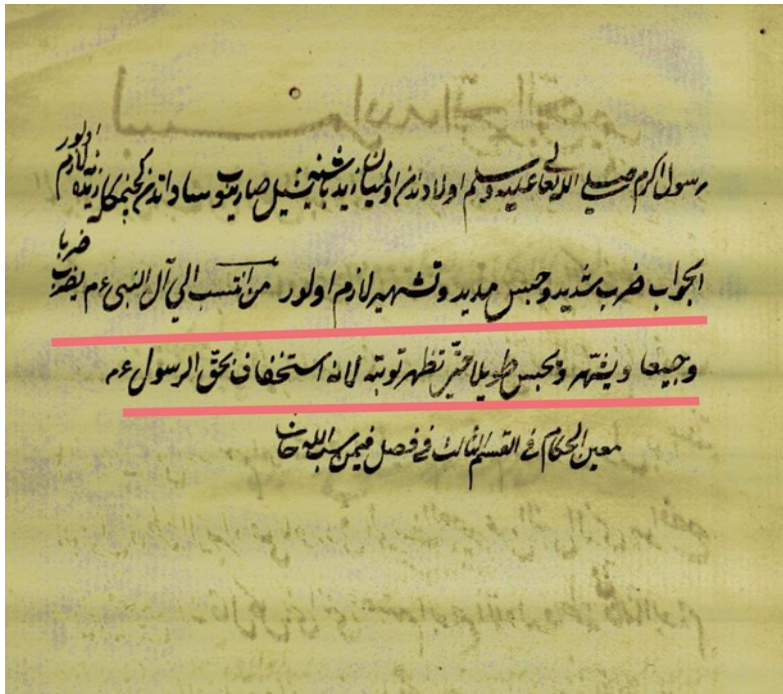 رسول اكرم صلى الله تعالى عليه وسلم اولادندن اولميان زيد باشنه يشيل صارينوب ساداتدنم ديسه زيده نه لازم اولور
الجواب ضرب شديد وحبس مديد وتشهير لازم اولور من انتسب الي آل النبى عم يضرب ضربا
وجيعا ويشهر ويحبس طويلا حتى تظهر توبته لانه استخفاف بحق الرسول عم
معين الحكام في القسم الثالث في فصل فيمن سب الله